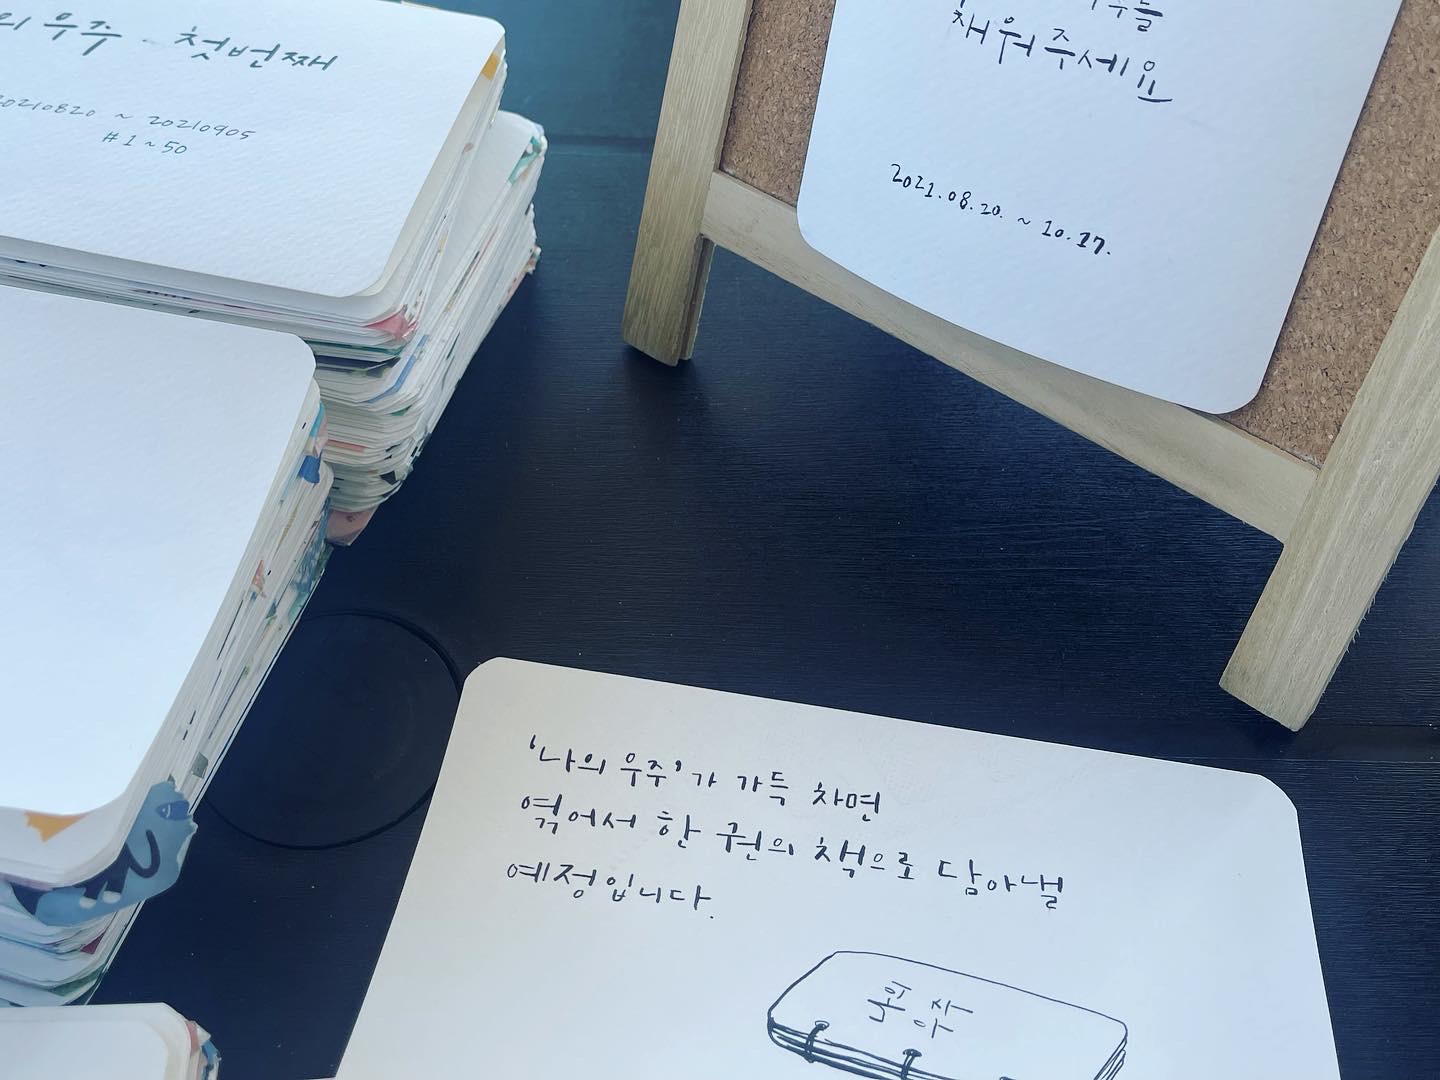 의 우주 - 첫번째
20210820 ~ 20210905
#1~50
채워주세요
2021.08.20. ~ 10.17.
'나의 우주'가 가득 차면
엮어서 한 권의 책으로 담아낼
예정입니다.